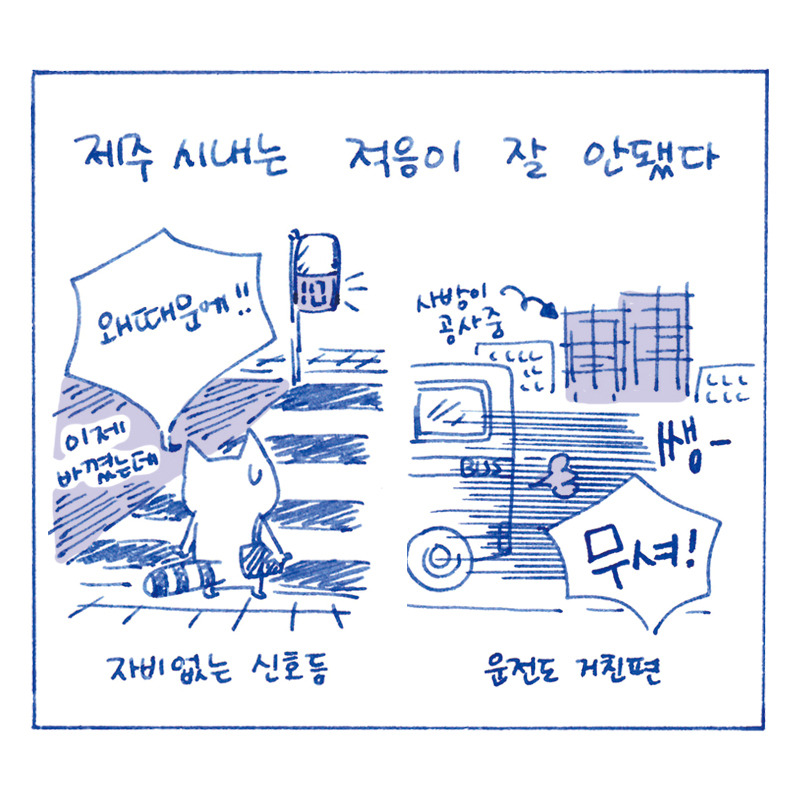 제주 시내는 적응이 잘 안됐다
왜때문에!!
이제
바꼈는데
자비없는 신호등
사방이
공사중
BUS
쌩-
무셔!
운전도 거친편